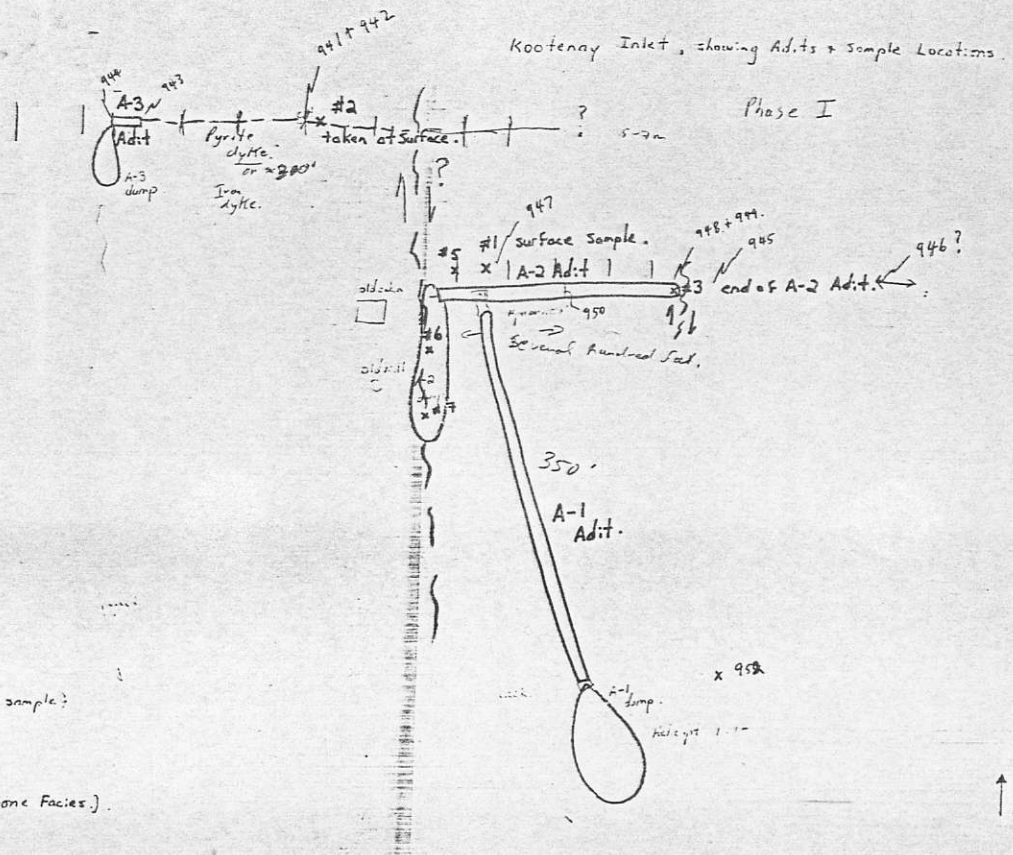 Kootenay Inlet, showing Adits & Sample Locations.
Phase I
941 + 942
944
943
A-3
Adit
A-3
dump
Pyrite
dyke.
or ≈200'
Iron
dyke.
#2
taken at Surface.
?
5-7m
?
947
#5
#1 surface Sample.
A-2 Adit
948 + 949.
945
946?
#3 end of A-2 Adit.
950
951
Several hundred feet.
#6
#7
350.
A-1
Adit.
x 952
A-1
dump.
sample?
one Facies.]